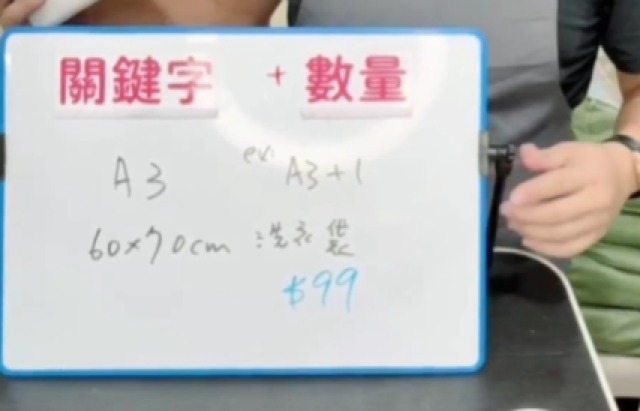 關鍵字 + 數量
A3 ex: A3+1
60×70cm 洗衣袋
$99